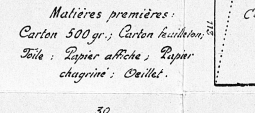 Matières premières:
Carton 500 gr.; Carton feuilleton;
Toile: Papier affiche; Papier
chagriné; Oeillet.
30